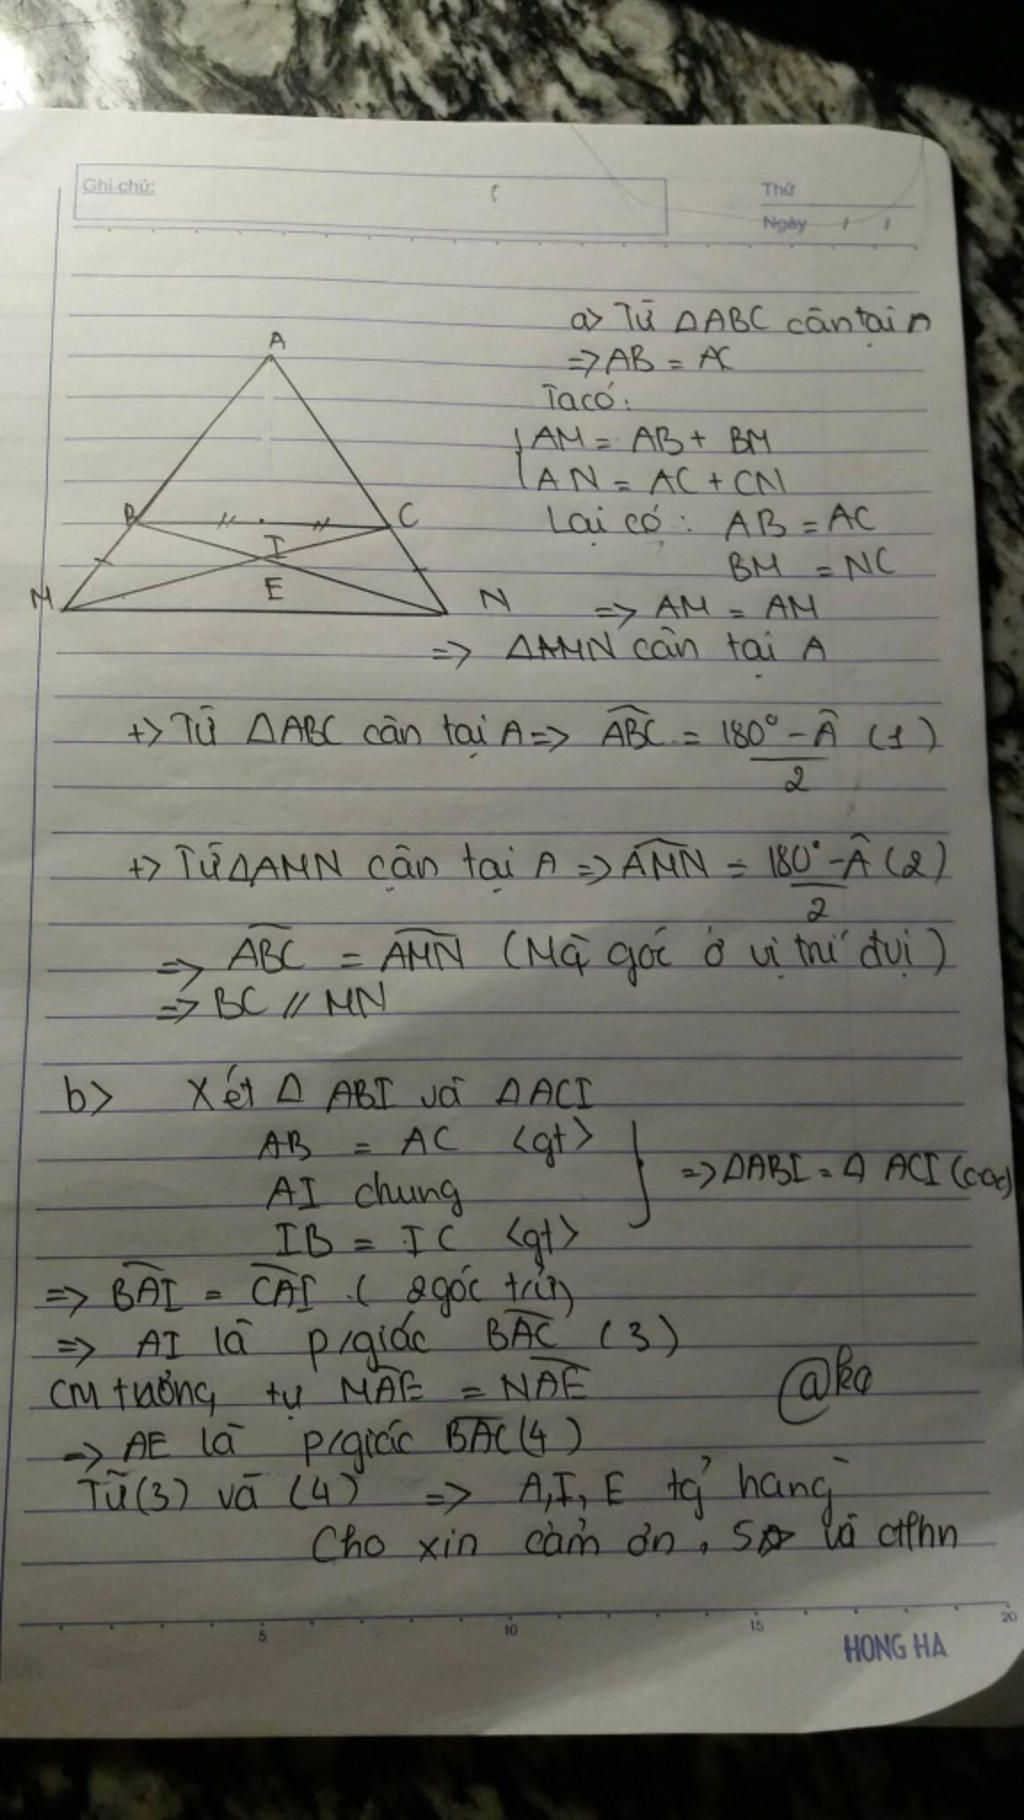 Ghi chú:
Thứ
Ngày / /
a> Từ △ABC cân tại A
=> AB = AC
Ta có:
AM = AB + BM
AN = AC + CN
Lại có: AB = AC
BM = NC
=> AM = AM
=> △AMN cân tại A
A
B
C
I
E
M
N
+> Từ △ABC cân tại A => ABC = 180° - Â (1)
2
+> Từ △AMN cân tại A => AMN = 180° - Â (2)
2
=> ABC = AMN (Mà góc ở vị trí đvị)
=> BC // MN
b> Xét △ ABI và △ACI
AB = AC <gt>
AI chung
IB = IC <gt>
=> △ABI = △ ACI (ccc)
=> BAI = CAI ( 2 góc
=> AI là p/giác BAC (3)
CM tương tự MAE = NAE
@ka
=> AE là p/giác BAC (4)
Từ (3) và (4) => A, I, E tg? hàng
Cho xin cảm ơn, 5☆ và ctlhn
5 10 15 20
HONG HA